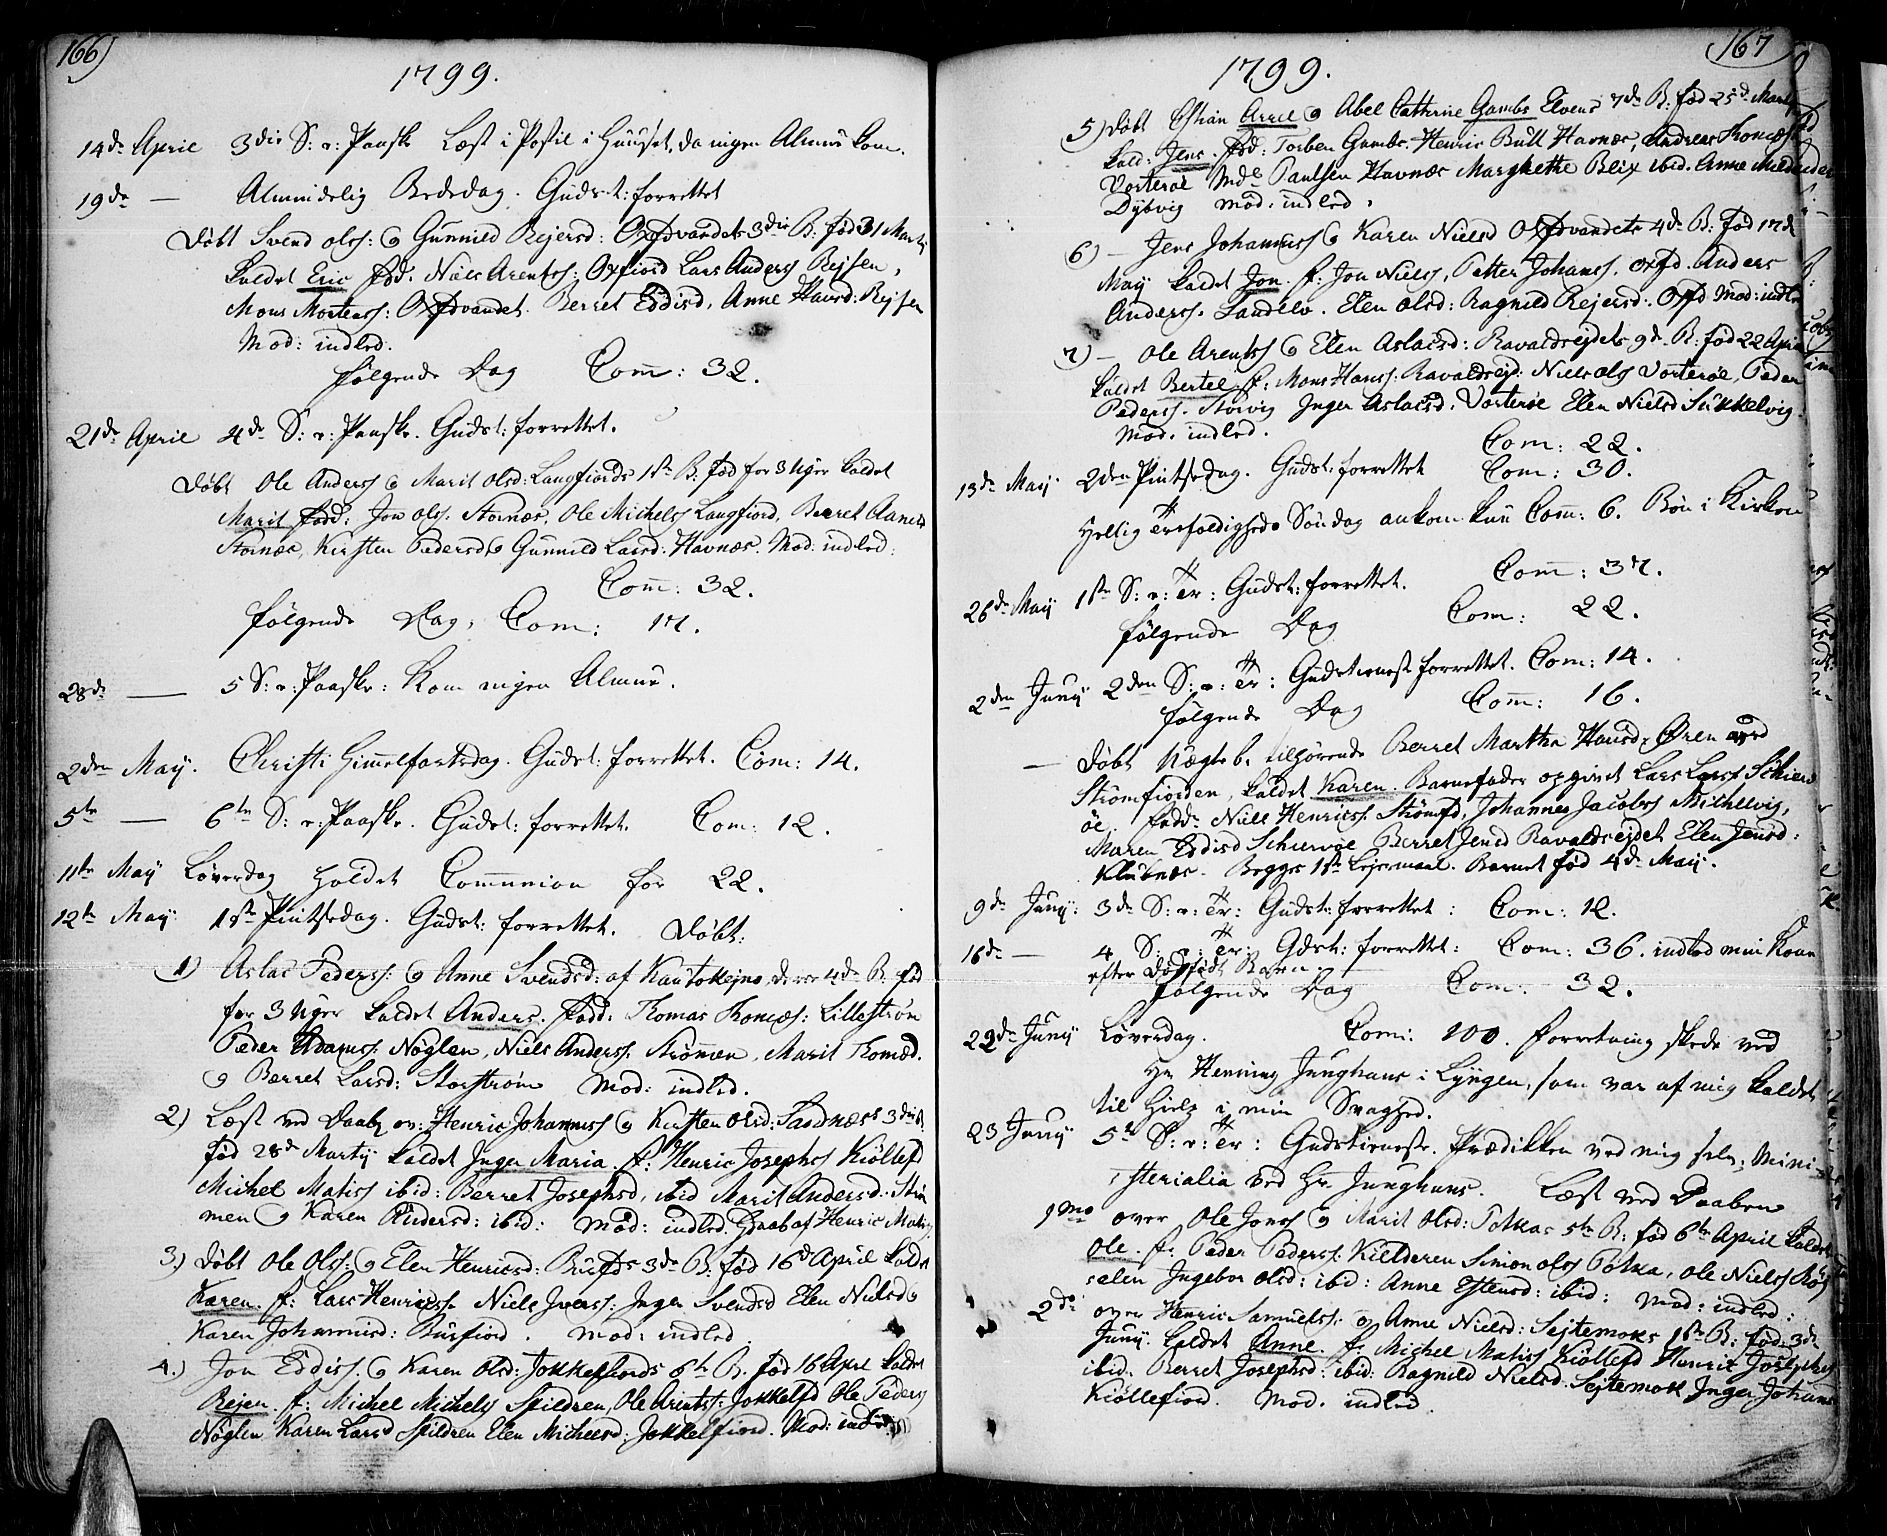 166)
1799.
14de April 3die S: e: Paaske Læst i Postil i Huuset, da ingen Almue kom.
19de — Almindelig Bededag. Gudst: forrettet
Døbt Svend Ols: og Gunnild Rejersd: Oxfdvandets 3die B: fød 31 Martij
kaldet Eric fad: Niels Arentss: Oxfiord Lars Anderss Rejsen,
Mons Mortenss: Oxfdvandet. Berret Eddisd, Anne Hansd: Rejsen
Mod: indled.
følgende Dag Com: 32.
21de April 4de S: e: Paaske. Gudst: forrettet.
Døbt Ole Anderss og Marit Olsd: Langfiords 1ste B: fød for 3 Uger kaldet
Marit fadd: Jon Ols. Stornæs, Ole Michelss Langfiord, Berret
Stornæs, Kirsten Pedersd og Gunnild Larsd: Havnæs. Mod: indled:
Com: 32.
følgende Dag, Com: 17.
28de — 5 S: e: Paaske: Kom ingen Almue.
2den May. Christi Himmelfartsdag. Gudst: forrettet. Com: 14.
5te — 6te S: e: Paaske. Gudst: forrettet. Com: 12.
11te May Løverdag holdet Communion for 22.
12te May: 1ste Pintsedag. Gudst: forrettet. Døbt:
1) Aslac Peders: og Anne Svendsd: af Kautokejno, deres 4de B. fød
for 3 Uger kaldet Anders. Fadd: Thomas Thomæs: Lillestrøm
Peder Adams: Nøglen, Niels Anders: Strømmen, Marit Thomæd.
og Berret Larsd: Storstrøm Mod: indled.
2) Læst ved Daab ov: Henric Johanness og Kirsten Olsd: Sandnæs 3die B.
fød 28de Martij kaldet Inger Maria. f: Henric Josephss Kiøllefd
Michel Matiss ibid: Berret Josephsd, ibid Marit Andersd: Strøm
men og Karen Andersd: ibid: Mod: indled. Hdaab af Henric Matiss
3) Døbt Ole Ols: og Elen Henricsd: Burfds 3de B: fød 16d April kaldet
Karen. f: Lars Henricss. Niels Iverss: Inger Svendsd Elen Nielsd og
Karen Johannisd: Burfiord. Mod: indled.
4.) Jon Eddiss. og Karen Olsd: Jokkelfiords 6te B. fød 16 April kaldet
Rejer. f: Michel Michelss Spildren, Ole Arentss: Jokkelfd Ole Peders
Nøglen Karen Larsd Spildren Elen Michelsd: Jokkelfiord. Mod: indled
167
1799.
5) Døbt Chrian Arrel og Abel Cathrine Gambs Elvens 7de B: fød 25d Martij
kald: Jens. fad: Torben Gambs. Henric Bull Havnæs, Andreas
Vorterøe Mdl Paulsen Havnæs Margrethe Blix ibid. Anne
Dybvig Mod: indled.
6) — Jens Johanness og Karen Nielsd Oxfdvandets 4de B: fød 17de
May kaldet Jon f: Jon Nielss, Petter Johanss. Oxfd. Anders
Anderss. Sandelv. Elen Olsd: Ragnild Rejersd: Oxfd Mod: indled
7) — Ole Arentss og Elen Aslacsd: Ravaldsejdets 9de B: fød 22 April
kaldet Bertel f: Mons Hans: Ravaldsejd: Niels Ols Vorterøe, Peder
Pederss. Storvig Inger Aslacsd: Vorterøe Elen Nielsd Sukkelvig.
Mod. indled. Com: 22.
13de May 2den Pintsedag. Gudst: forrettet Com: 30.
Hellig Trefoldigheds Søndag ankom kun Com: 6. Bøn i Kirken
26de May 1ste S: e: Tr: Gudst: forrettet. Com: 37.
følgende Dag Com: 22.
2den Junij 2den S: e: Tr: Gudstienest forrettet. Com: 14.
følgende Dag Com: 16.
— Døbt Uægte b. tilhørende Berret Martha Hansd, Øren ved
Strømfiorden, kaldet Karen. Barnefader opgivet Lars Larss Schierv
øe. fadd: Niels Henricss. Strømfd, Johannes Jacobss Michelvig,
Maren Eddisd Schiervøe Berret Jensd Ravaldsejdet Elen Jensd:
Klubnæs. Begges 1ste Lejermaal. Barnet fød 4de May.
9de Junij: 3de S: e: Tr: Gudst: forrettet: Com: 12.
16de — 4 S: e: Tr: Gdst: forrettet: Com: 36. indled min Kone
efter dødfødt Barn.
følgende Dag Com: 32.
22de Junij Løverdag. Com: 100. Forretning skede ved
Hr Henning Junghans i Lyngen, som var af mig kaldet
til Hielp i min Svaghed.
23 Junij 5te S: e: Tr: Gudstieneste. Prædikken ved mig selv, Mini-
sterialia ved Hr. Junghans. Læst ved Daaben
1mo over Ole Jonss og Marit Olsd: Potkas 5te B: fød 6te April kaldet
Ole. f: Peder Pederss: Kielderen Simon Olss Potka, Ole Nielss
Ingebor Olsd: ibid: Anne Estensd: ibid: Mod: indled:
2do over Henric Samuelss: og Anne Nielsd: Sejtemoks 1ste B: fød 3de
Junij kaldet Anne f. Michel Matiss Kiøllefd Henric Josephss
ibid. Berret Josephsd: ibid: Ragnild Nielsd. Sejtemok Inger Johans
Kiøllefiord. Mod. indled.